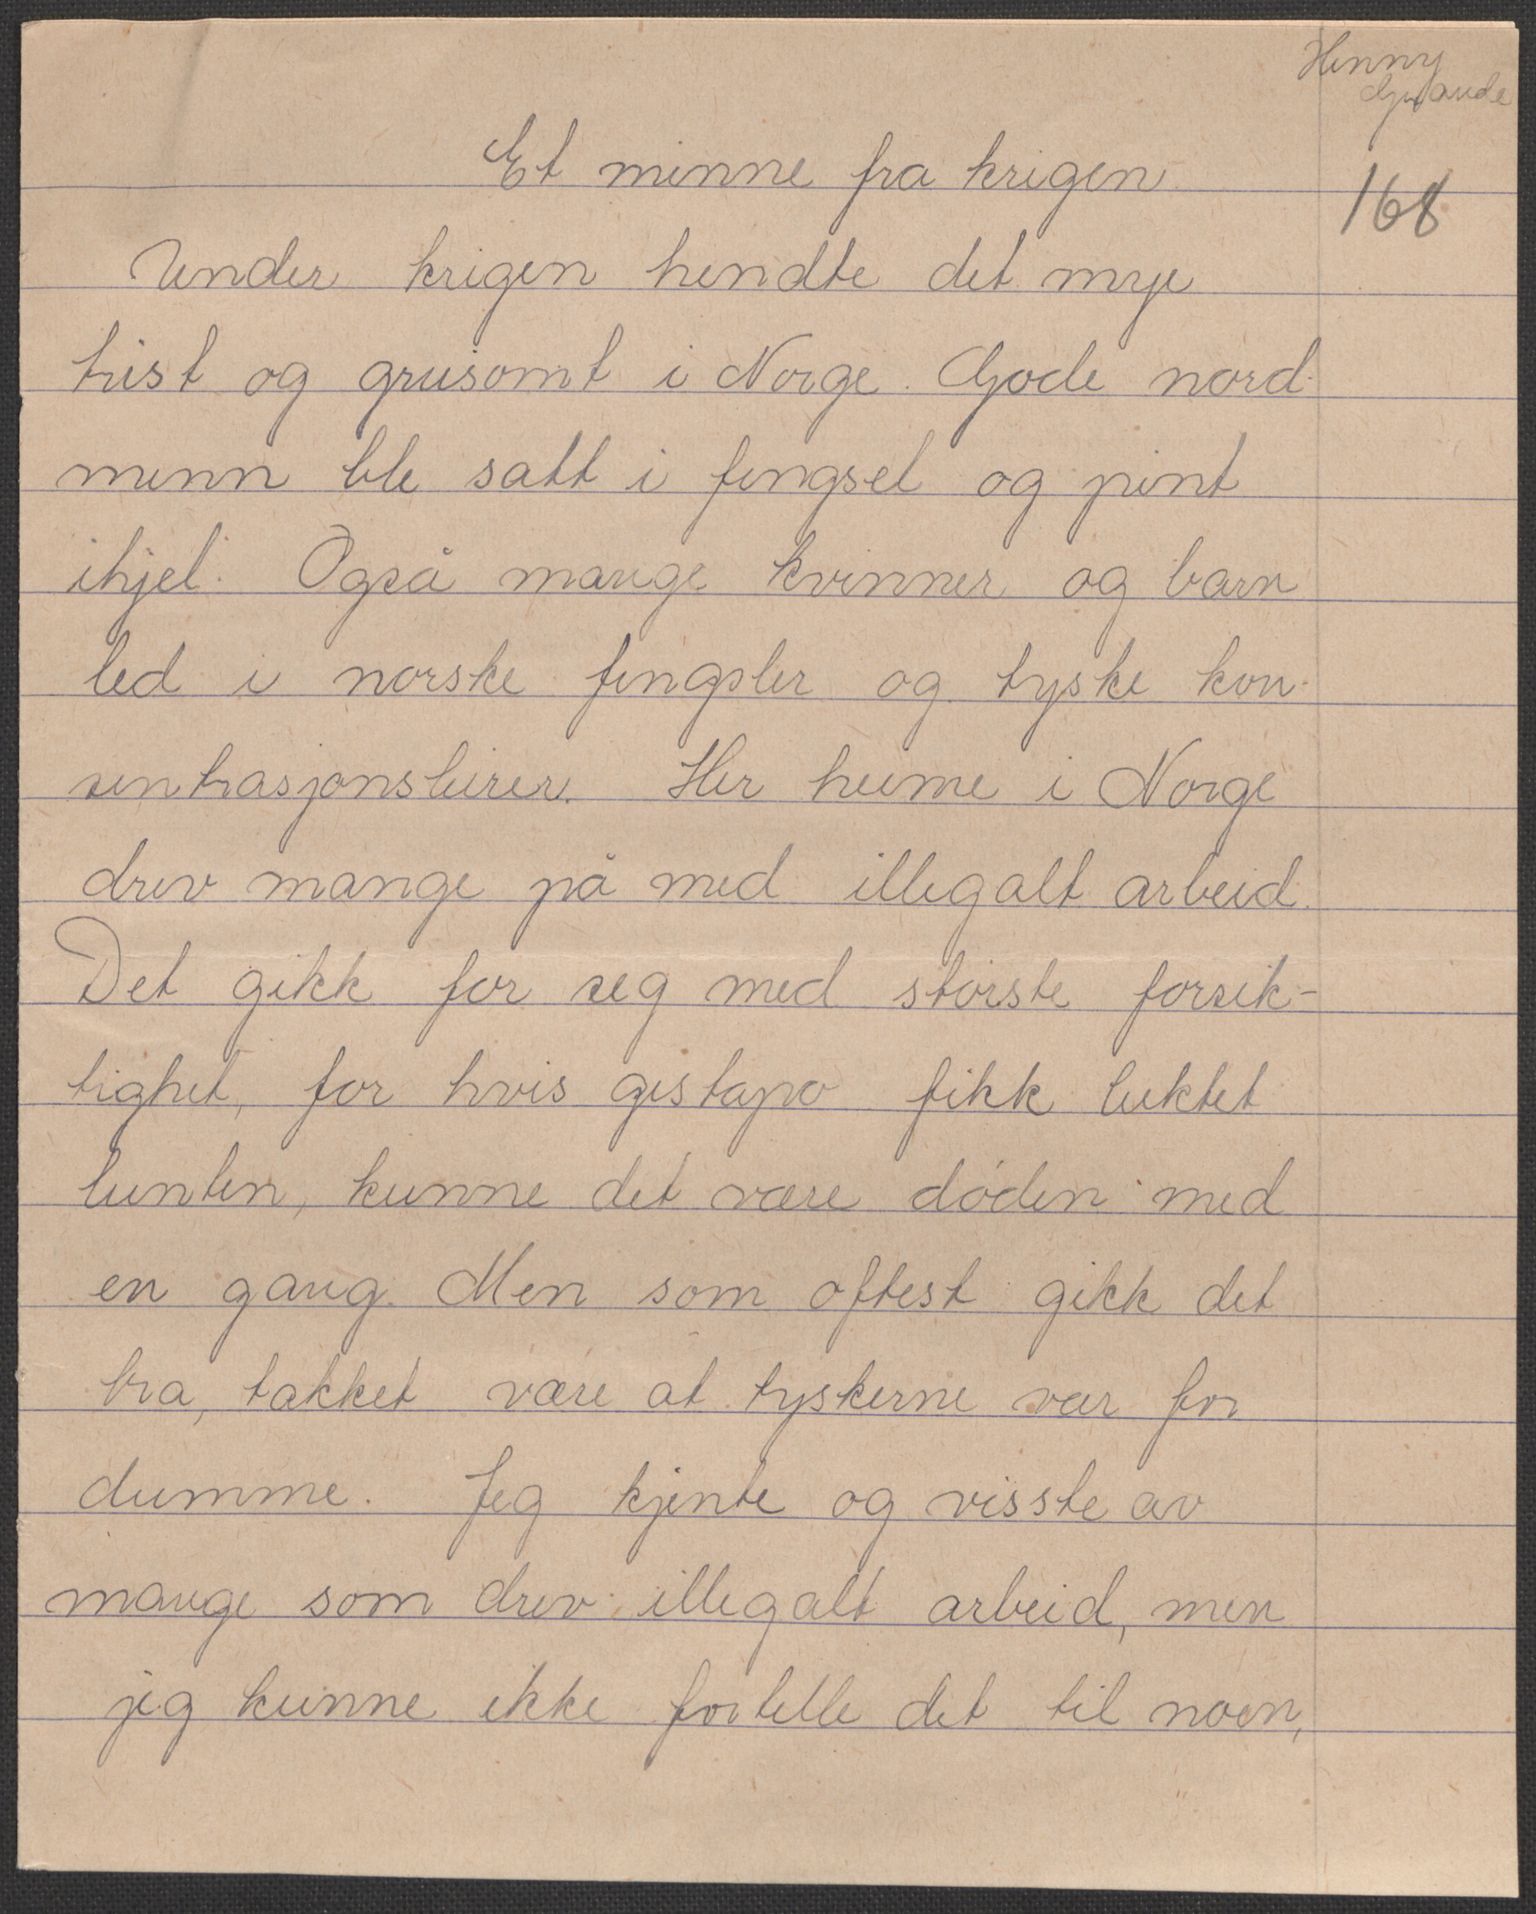 Henny
Et minne fra krigen
168
Under krigen hendte det mye
trist og grusomt i Norge. Gode nord-
menn ble satt i fengsel og pint
ihjel. Også mange kvinner og barn
led i norske fengsler og tyske kon-
sentrasjonsleirer. Her heime i Norge
drev mange på med illegalt arbeid.
Det gikk for seg med største forsik-
tighet, for hvis gestapo fikk luktet
lunten, kunne det være døden med
en gang. Men som oftest gikk det
bra, takket være at tyskerne var for
dumme. Jeg kjente og visste av
mange som drev illegalt arbeid, men
jeg kunne ikke fortelle det til noen,